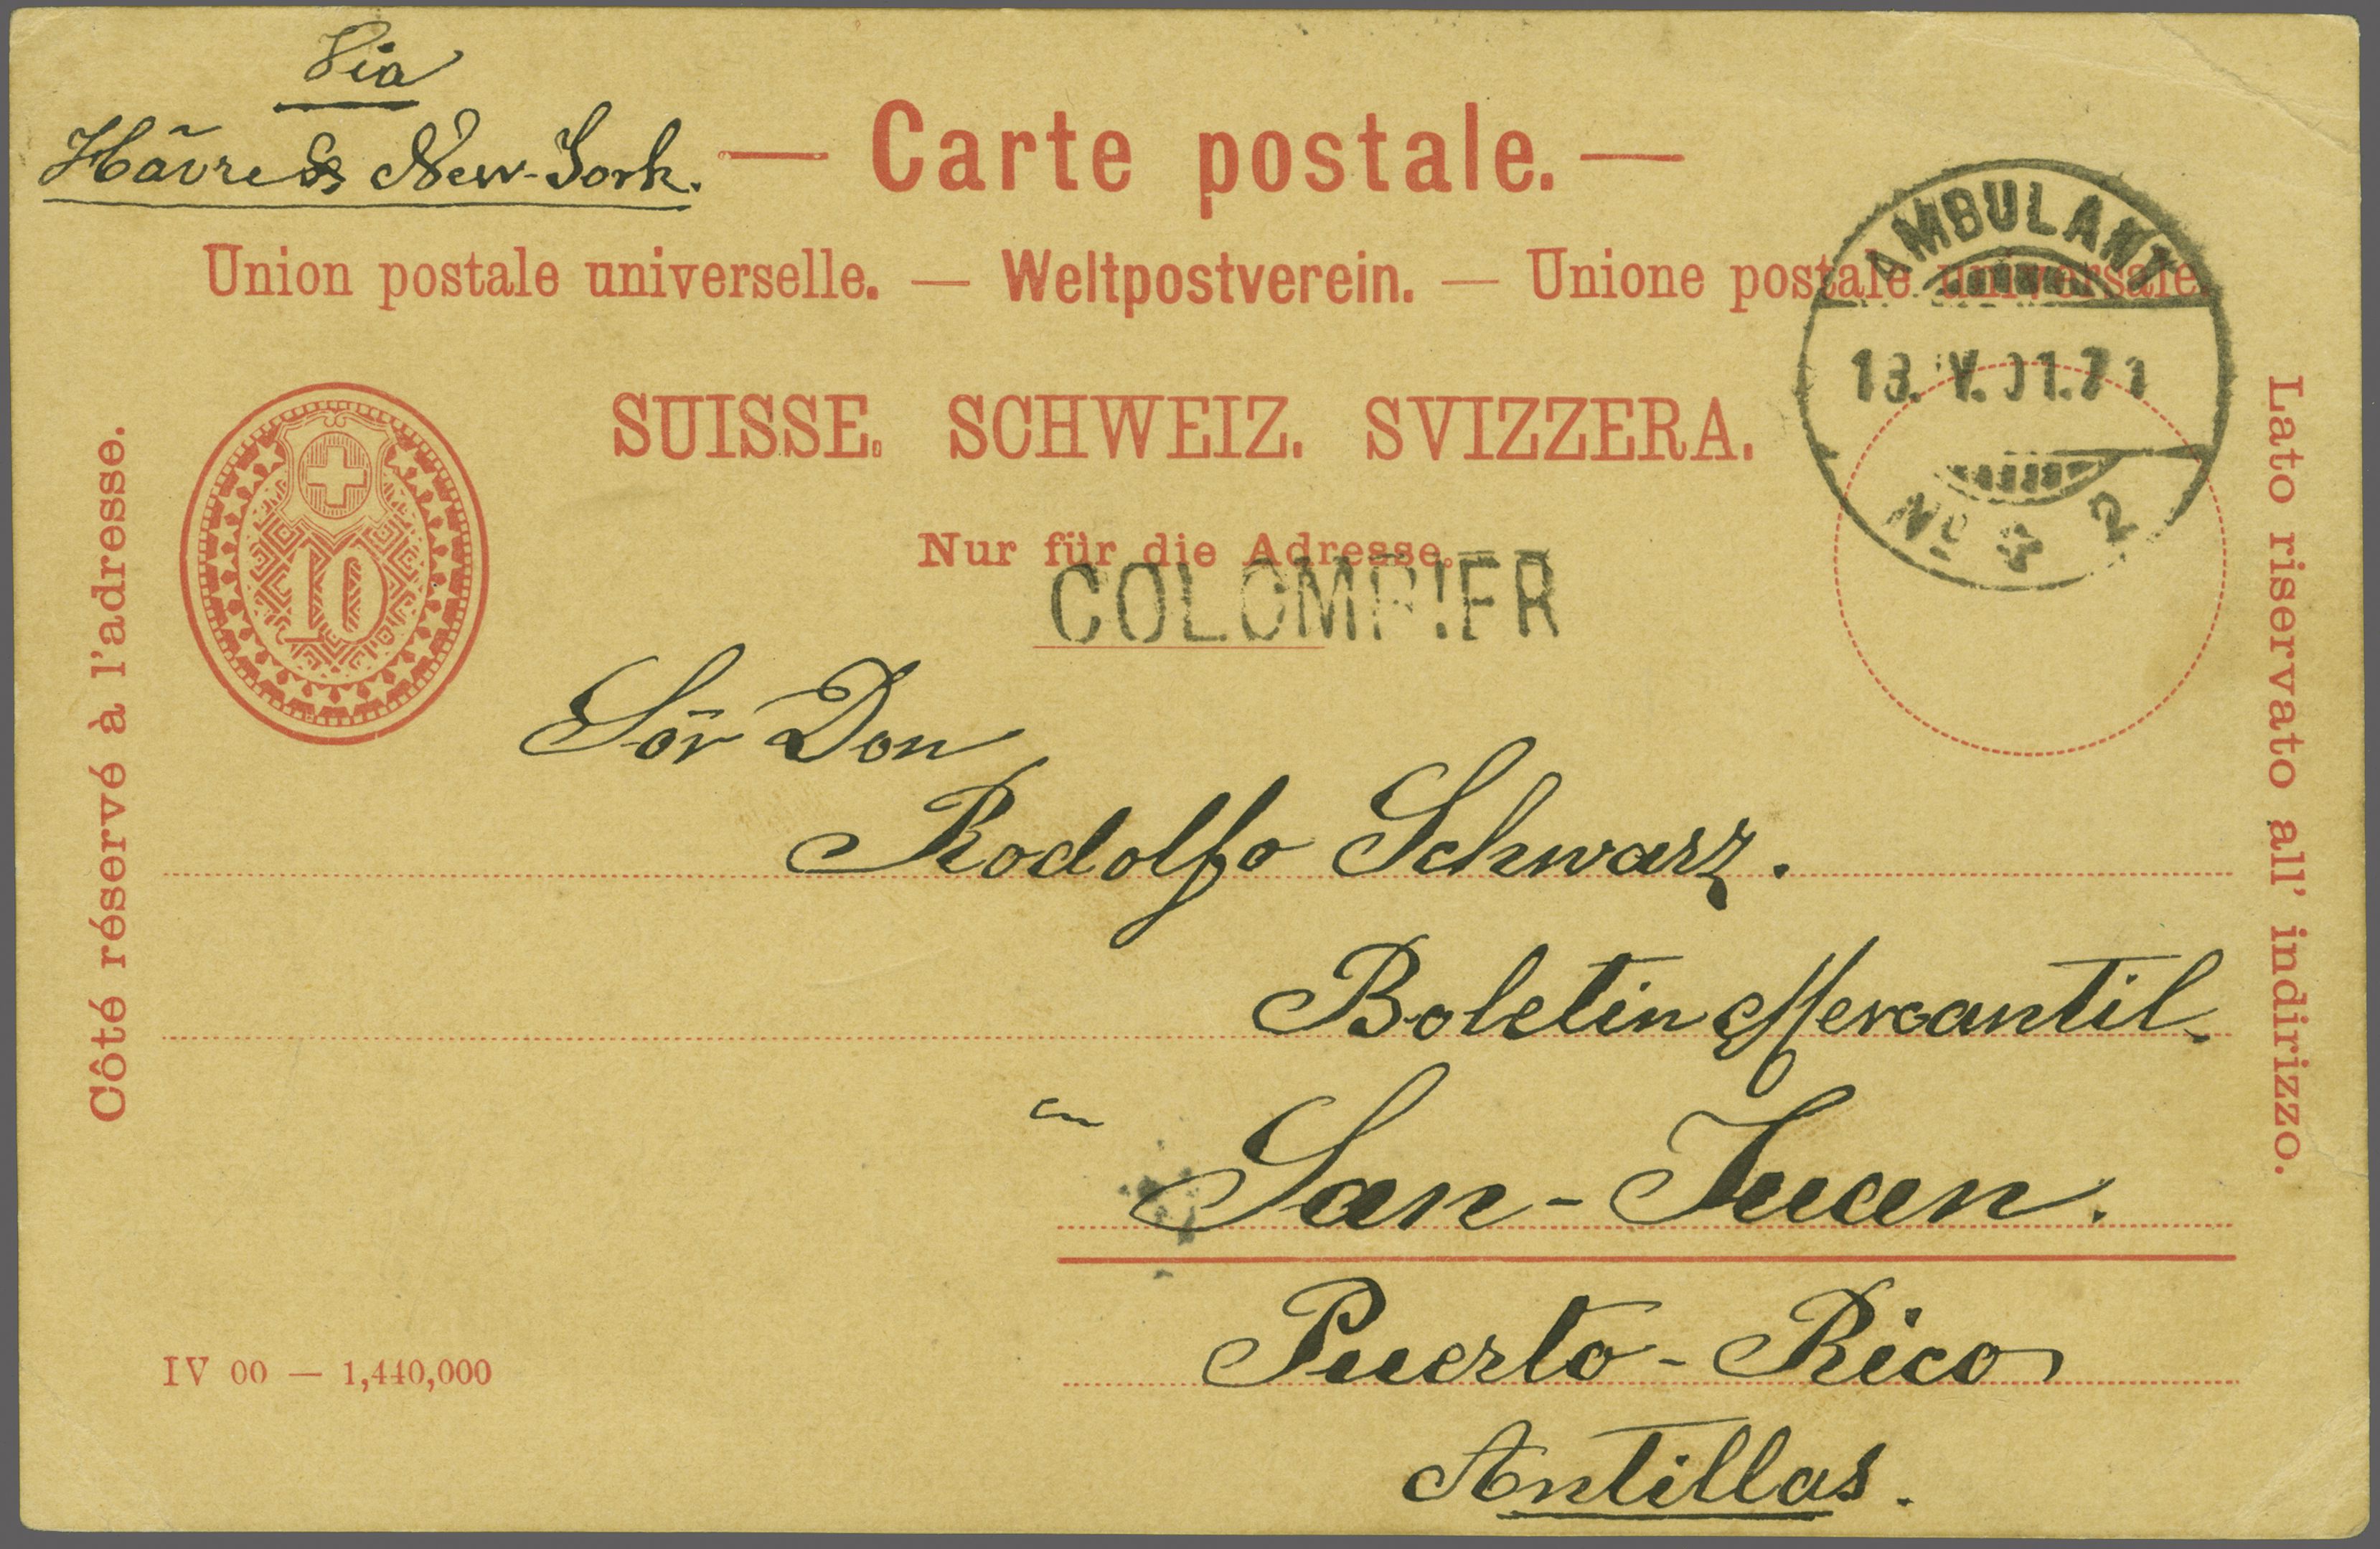 Via
Hâvre & New-York.
— Carte postale. —
Union postale universelle. — Weltpostverein. — Unione postale universale.
AMBULANT
SUISSE. SCHWEIZ. SVIZZERA.
Nº 2
Nur für die Adresse.
COLOMBIER
10
Côté réservé à l'adresse.
Lato riservato all' indirizzo.
Sör Don
Rodolfo Schwarz.
Boletin Mercantil
en
San-Juan.
Puerto-Rico
IV 00 — 1,440,000
Antillas.